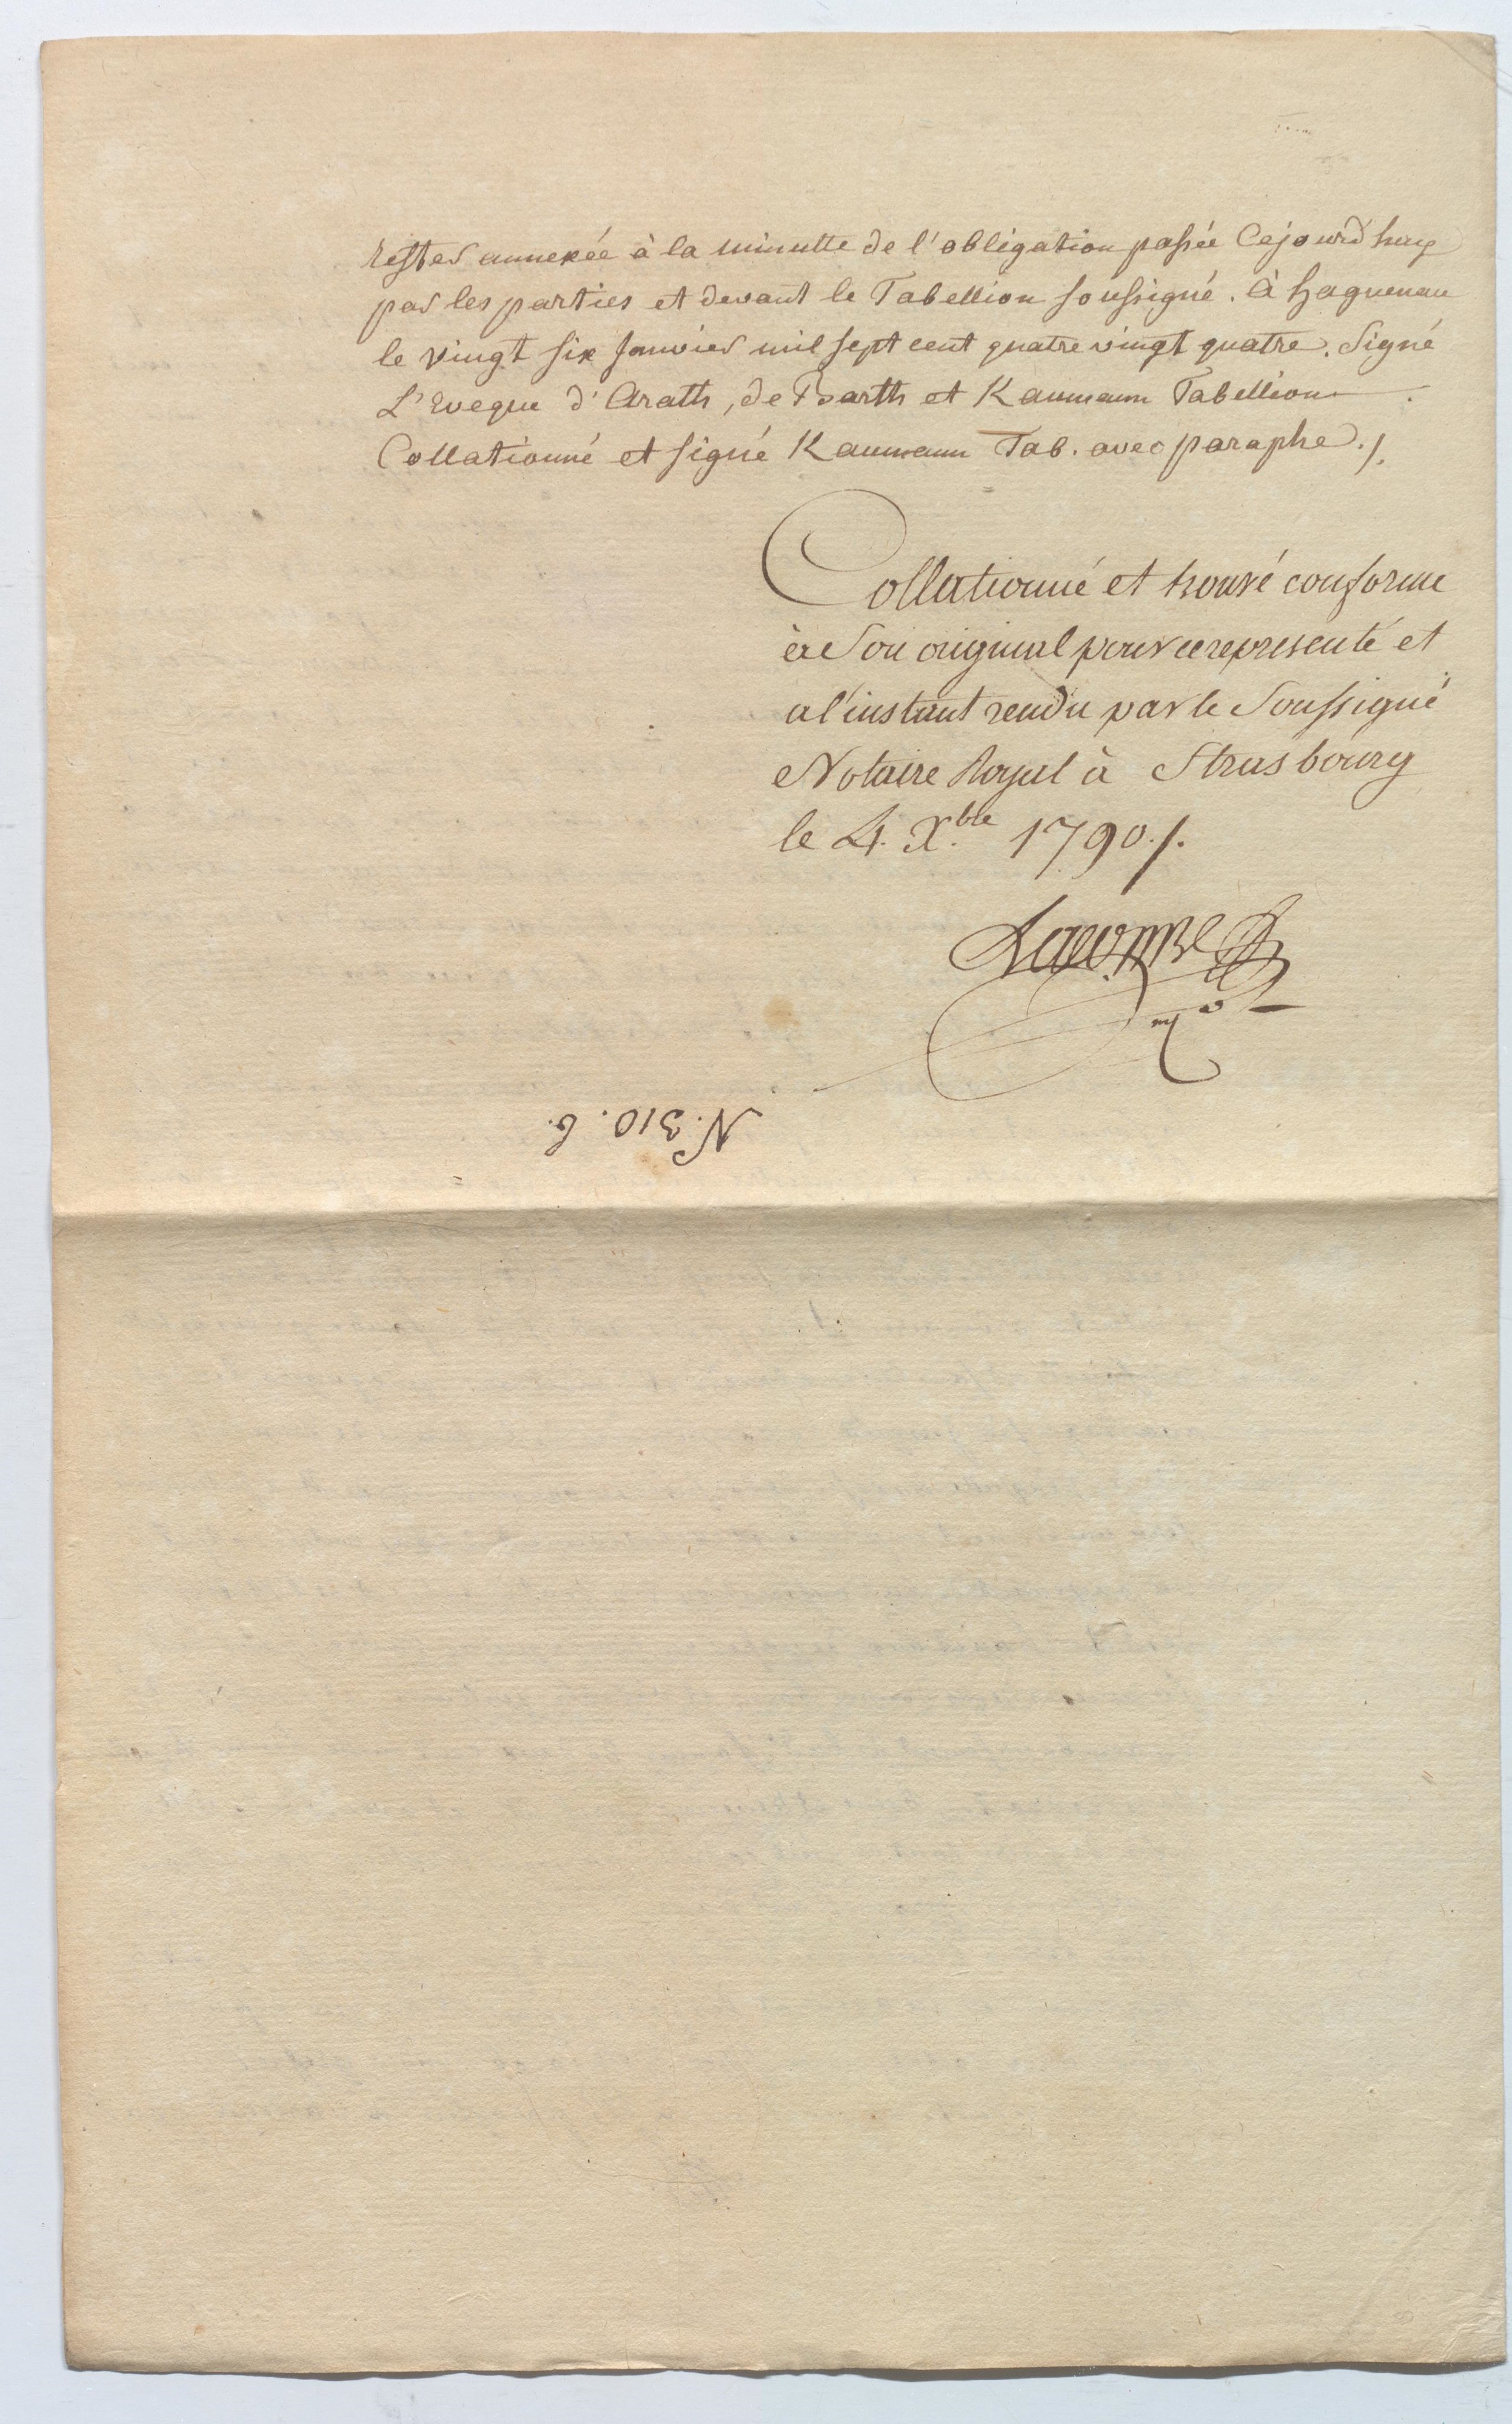 rester annexée à la minutte de l'obligation passée Cejourd'huy
par les parties et devant le Tabellion soussigné. à haguenau
le vingt six Janvier mil sept cent quatre vingt quatre. Signé
L'Eveque d'Arath, de Barth et Kaumann Tabellion.
Collationné et signé Kaumann Tab. avec paraphe ./.
Collationné et trouvé conforme
à Son original pour ce representé et
a l'instant rendu par le Soussigné
Notaire Royal à Strasbourg
le 4. Xble 1790 ./.
N. 310. 6.